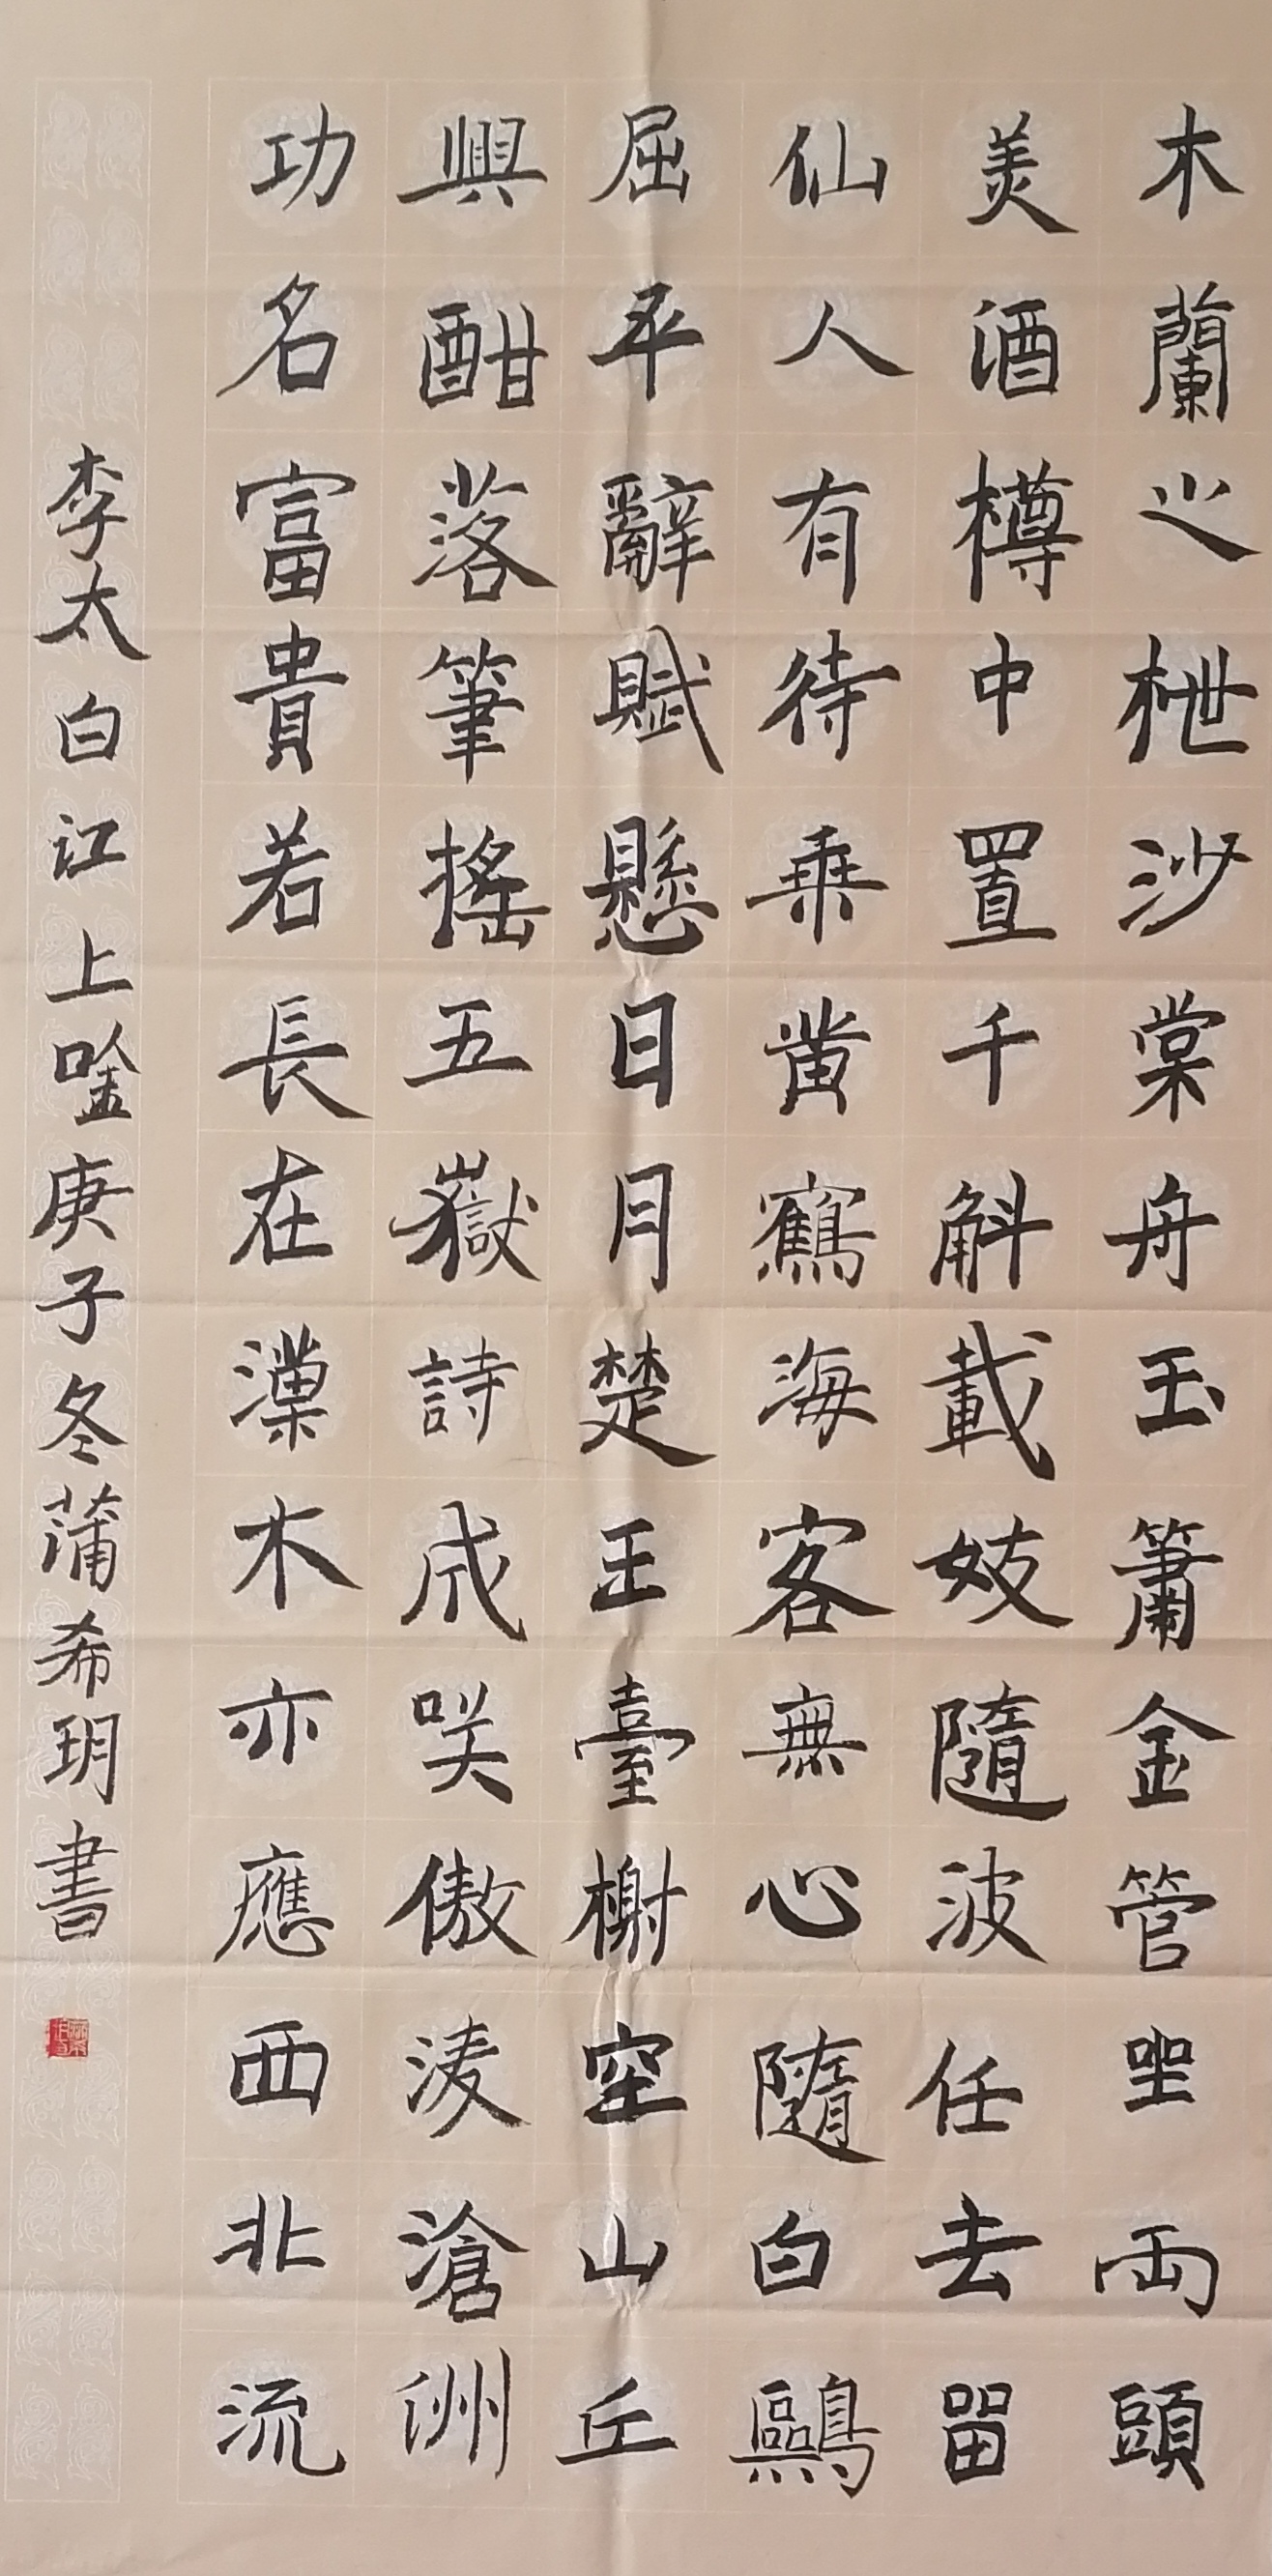 木蘭之枻沙棠舟玉簫金管坐兩頭
美酒樽中置千斛載妓隨波任去留
仙人有待乘黄鶴海客無心隨白鷗
屈平辭賦懸日月楚王臺榭空山丘
興酣落筆搖五嶽詩成咲傲淩滄洲
功名富貴若長在漢水亦應西北流
李太白江上唫庚子冬蒲希玥書